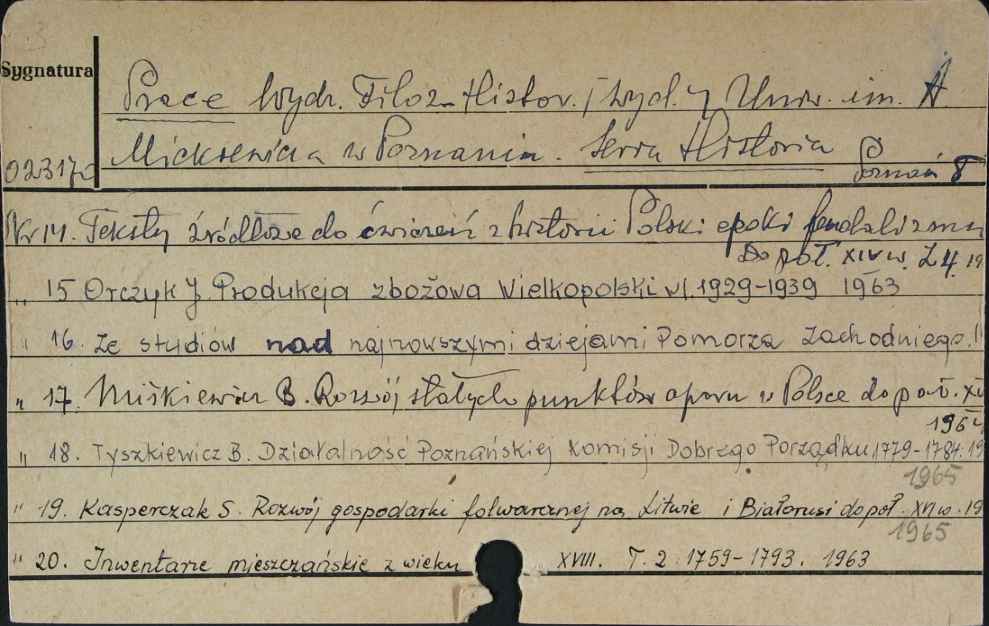 Sygnatura
Prace Wydz. Filoz-Histor. [wyd.] Uniw. im. A
Mickiewicza w Poznaniu. Seria Historia
023170
Poznań 8
Nr 14. Teksty źródłowe do ćwiczeń z historii Polski epoki feudalizmu
Do poł. XIV w. Z 4. 19
" 15 Orczyk J. Produkcja zbożowa Wielkopolski w l. 1929-1939 1963
" 16. Ze studiów nad najnowszymi dziejami Pomorza Zachodniego.
" 17. Miśkiewicz B. Rozwój stałych punktów oporu w Polsce do poł. XV
1964
" 18. Tyszkiewicz B. Działalność Poznańskiej Komisji Dobrego Porządku 1779-1784. 19
1965
" 19. Kasperczak S. Rozwój gospodarki folwarcznej na Litwie i Białorusi do poł. XVI w. 19
1965
" 20. Inwentarze mieszczańskie z wieku XVIII. T. 2. 1759-1793. 1963